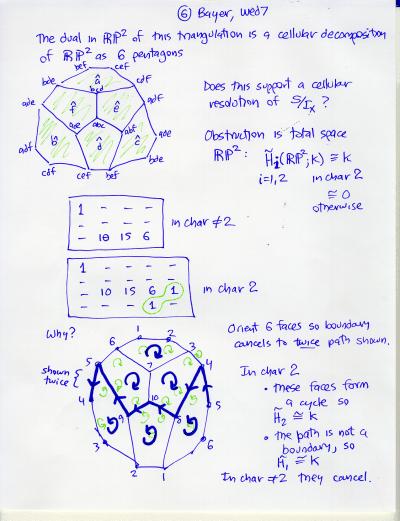 ⑥ Bayer, Wed7
The dual in RP² of this triangulation is a cellular decomposition
of RP² as 6 pentagons
bef cef
bde â cdf
bcd
ade adf
f̂ ê
ace abc abf
adf b̂ d̂ ĉ ade
bde
cdf cef bef
Does this support a cellular
resolution of S/I_X ?
Obstruction is total space
RP²: H̃ᵢ(RP²;k) ≅ k
i=1,2 in char 2
≅ 0
otherwise
1 – – –
– – – –
– 10 15 6
in char ≠2
1 – – – –
– – – – –
– 10 15 6 1
– – – 1 –
in char 2
Why?
shown twice
1 2
6 3
5 7 4
4 10 5
9 8
3 6
2 1
Orient 6 faces so boundary
cancels to twice path shown.
In char 2
• these faces form
a cycle so
H̃₂ ≅ k
• the path is not a
boundary, so
H̃₁ ≅ k
In char ≠2 they cancel.